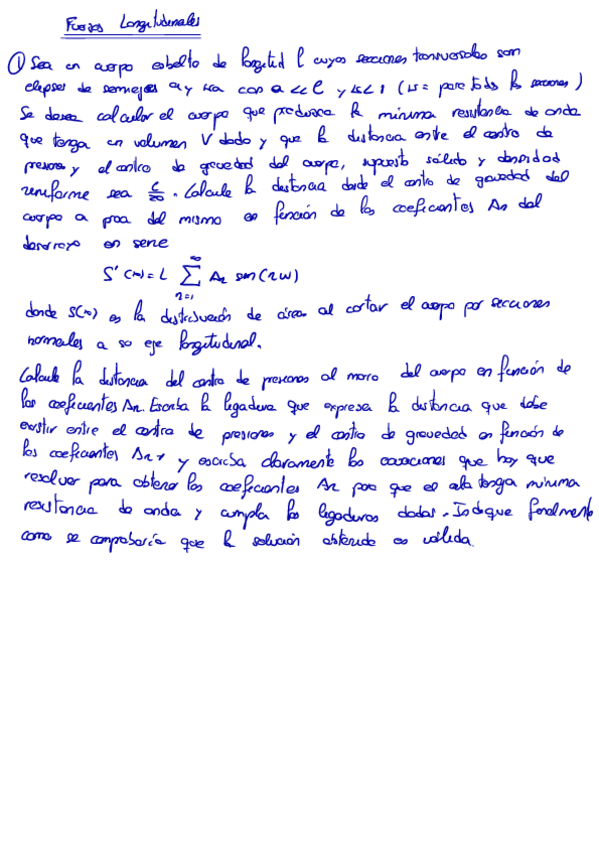 Fuerzas Longitudinales
① Sea un cuerpo esbelto de longitud l cuyas secciones transversales son
elipses de semiejes a y ka con a<<l y k<1 (k = para todas las secciones)
Se desea calcular el cuerpo que produzca la mínima resistencia de onda
que tenga un volumen V dado y que la distancia entre el centro de
presiones y el centro de gravedad del cuerpo, supuesto sólido y densidad
uniforme sea l/20. Calcule la distancia desde el centro de gravedad del
cuerpo a proa del mismo en función de los coeficientes An del
desarrollo en serie
S'(x) = l ∑ₙ₌₁^∞ An sen(nω)
donde S(x) es la distribución de áreas al cortar el cuerpo por secciones
normales a su eje longitudinal.
Calcule la distancia del centro de presiones al morro del cuerpo en función de
los coeficientes An. Escriba la ligadura que expresa la distancia que debe
existir entre el centro de presiones y el centro de gravedad en función de
los coeficientes An, y escriba claramente las ecuaciones que hay que
resolver para obtener los coeficientes An para que el ala tenga mínima
resistencia de onda y cumpla las ligaduras dadas. Indique finalmente
como se comprobaría que la solución obtenida es válida.